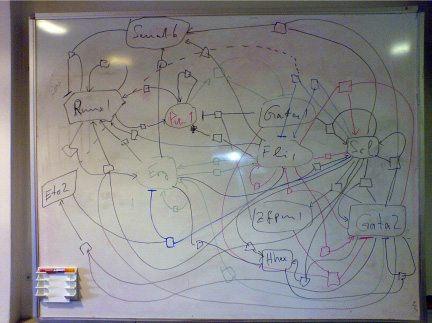 Smad6
Runx1
Pu.1
Gata1
Fli1
Scl
Erg
Eto2
Zfpm1
Gata2
Hhex